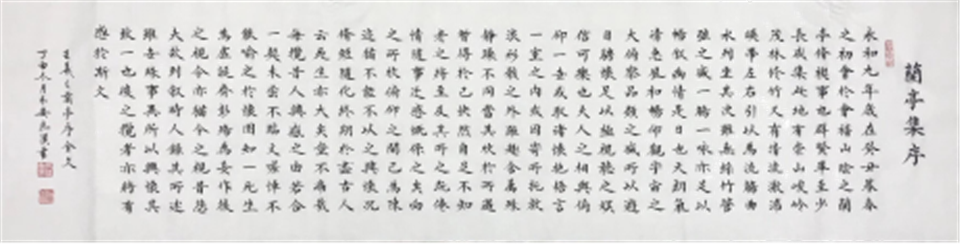 蘭亭集序
永和九年歲在癸丑暮春
之初會於會稽山陰之蘭
亭脩禊事也群賢畢至少
長咸集此地有崇山峻嶺
茂林修竹又有清流激湍
暎帶左右引以為流觴曲
水列坐其次雖無絲竹管
弦之盛一觴一詠亦足以
暢叙幽情是日也天朗氣
清惠風和暢仰觀宇宙之
大俯察品類之盛所以遊
目騁懷足以極視聽之娛
信可樂也夫人之相與俯
仰一世或取諸懷抱悟言
一室之內或因寄所託放
浪形骸之外雖趣舍萬殊
靜躁不同當其欣於所遇
暫得於己快然自足不知
老之將至及其所之既倦
情隨事遷感慨係之矣向
之所欣俯仰之間已為陳
迹猶不能不以之興懷況
脩短隨化終期於盡古人
云死生亦大矣豈不痛哉
每攬昔人興感之由若合
一契未嘗不臨文嗟悼不
能喻之於懷固知一死生
為虛誕齊彭殤為妄作後
之視今亦猶今之視昔悲
夫故列叙時人錄其所述
雖世殊事異所以興懷其
致一也後之攬者亦將有
感於斯文
王羲之蘭亭序全文
丁酉冬月